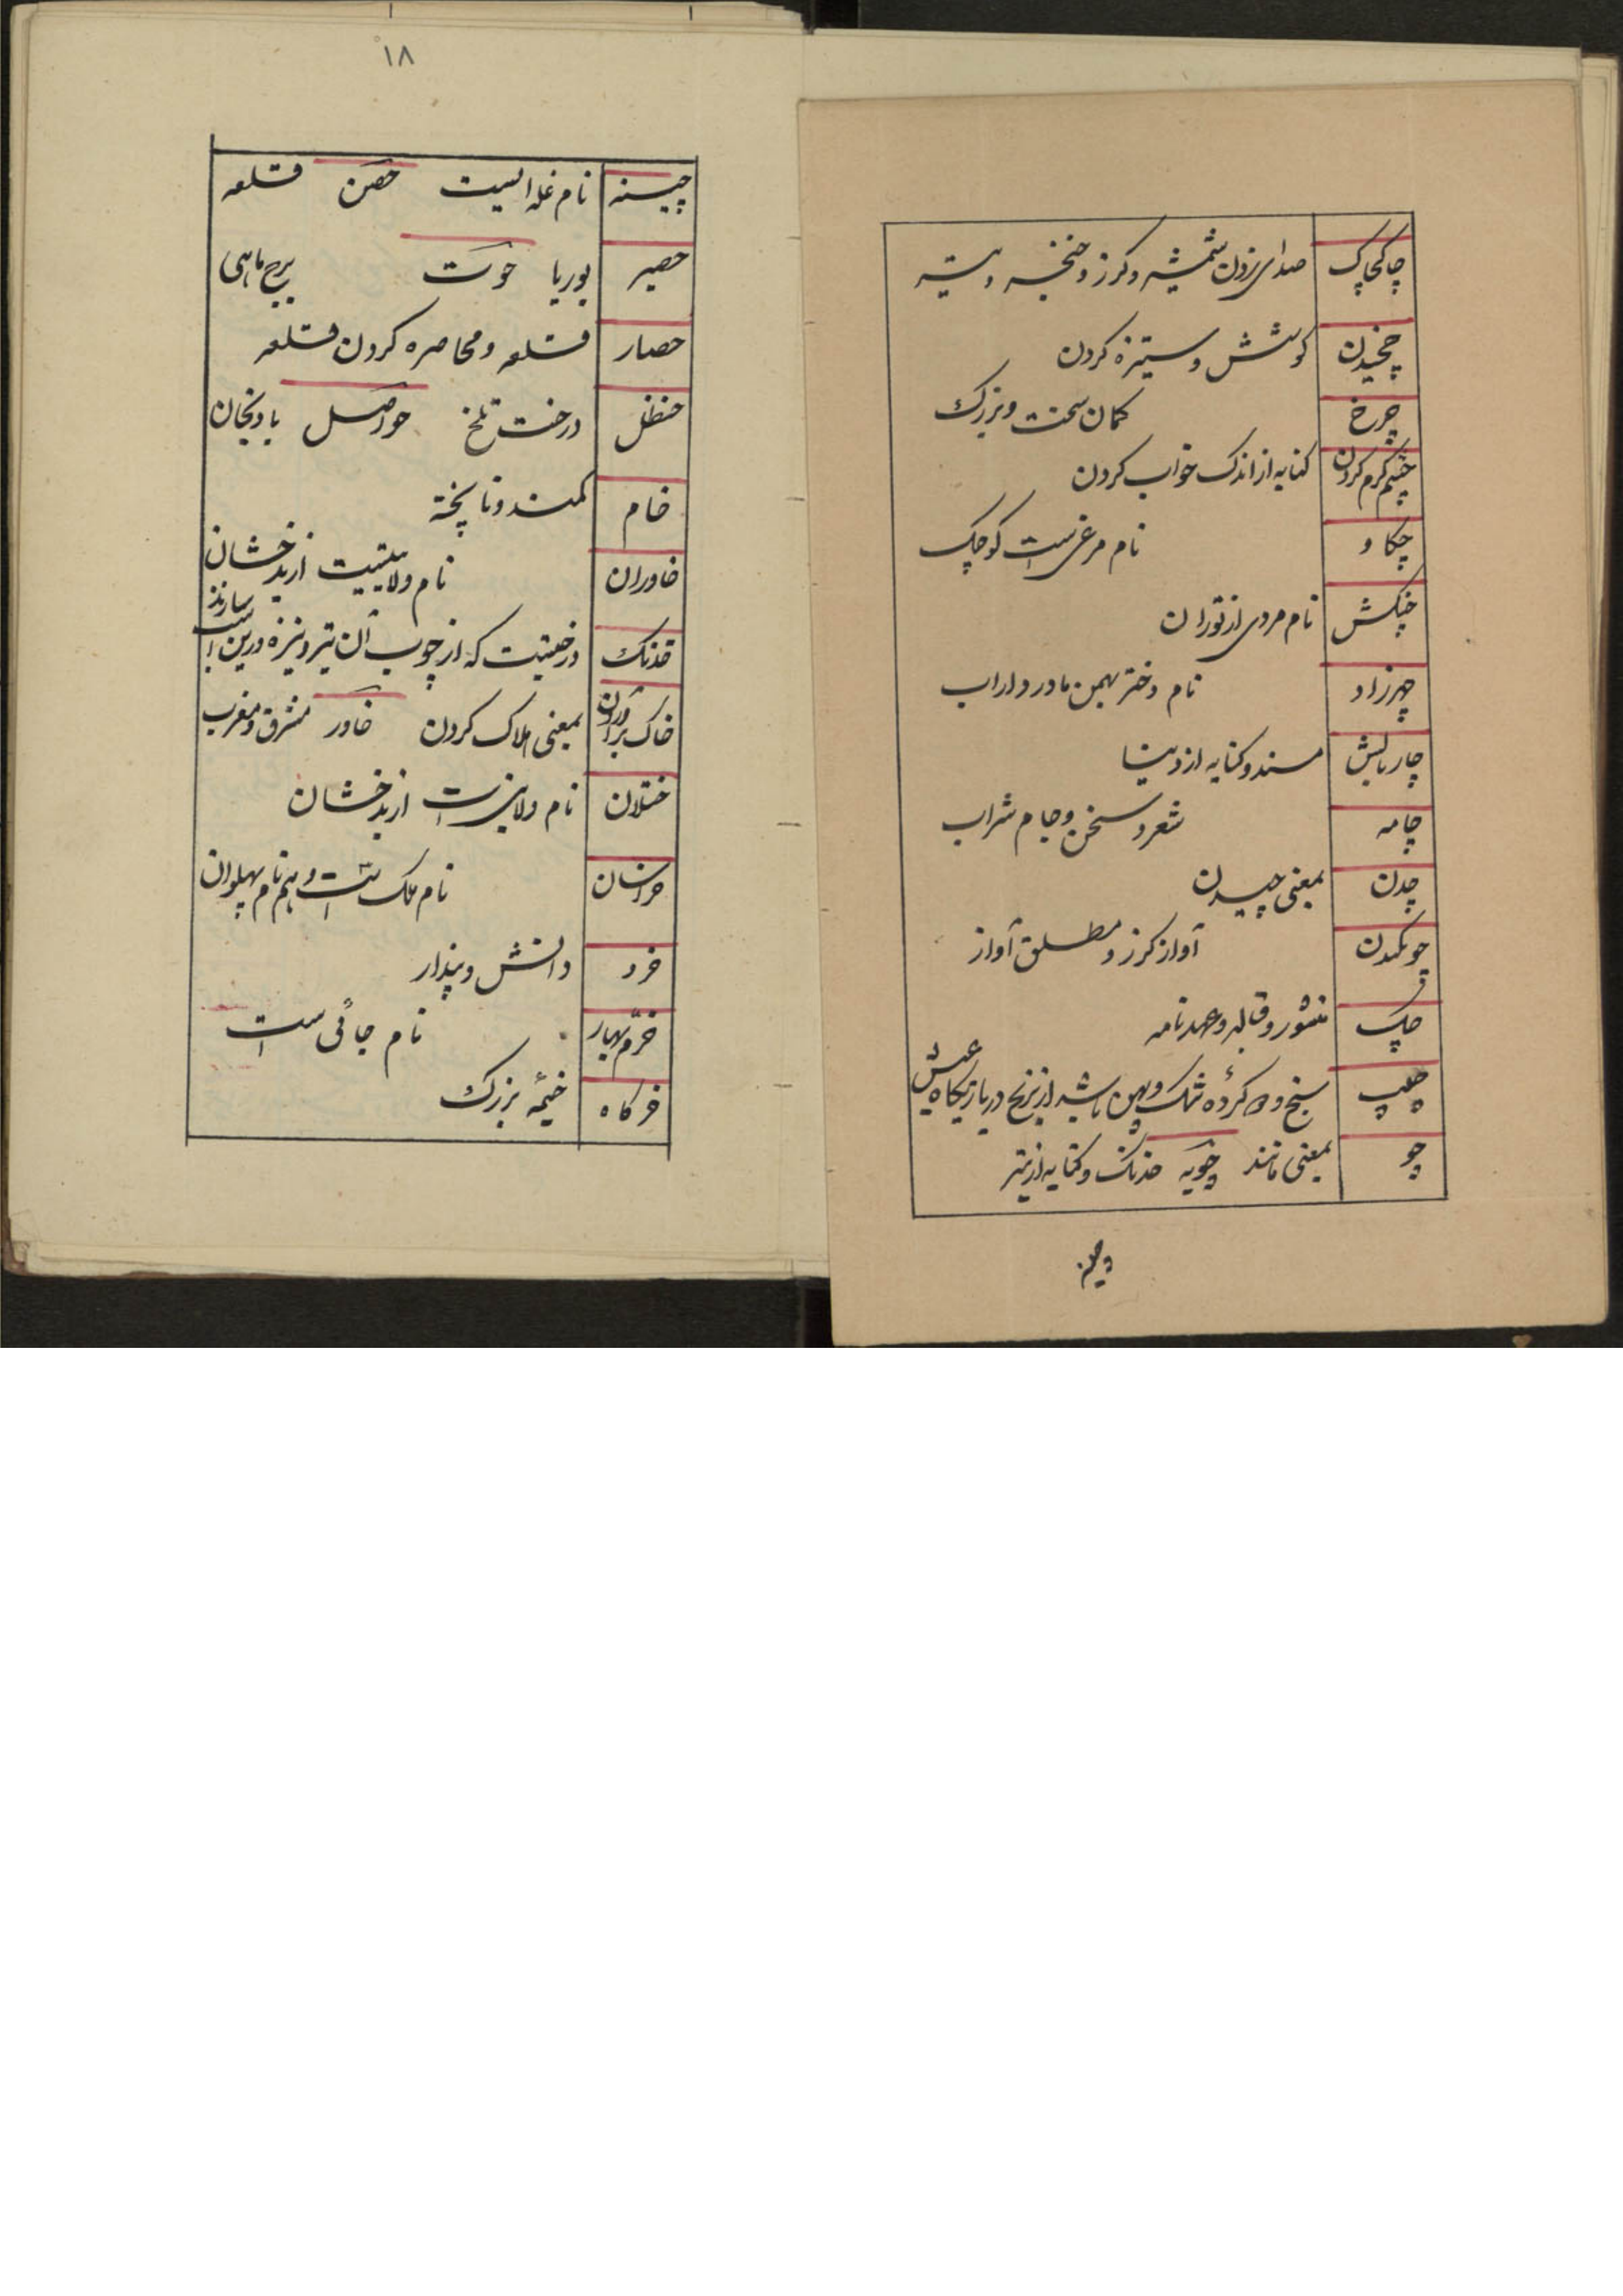 چاکچاک صدای زدن شمشیر و گرز و خنجر و تیشه
چخیدن کوشش و ستیزه کردن
چرخ کمان سخت و بزرگ
چشم گرم کردن کنایه از اندک خواب کردن
چکاو نام مرغی است کوچک
چنگش نام مردی از توران
چهرزاد نام دختر بهمن مادر داراب
چاربالش مسند و کنایه از دنیا
چامه شعر و سخن و جام شراب
چدن بمعنی چیدن
آواز گرز و مطلق آواز
چک منشور و قباله و عهدنامه
چلیپ
چو بمعنی مانند چوبه خدنک و کنایه از تیر
۱۸
چینه نام غله ایست حصن قلعه
حصیر بوریا حوت برج ماهی
حصار قلعه و محاصره کردن قلعه
حنظل درخت تلخ حواصل بادنجان
خام کمند و ناپخته
خاوران نام ولایتیست از بدخشان
خدنک درختیست که از چوب آن تیر و نیزه و زین اسب سازند
خاک برآوردن بمعنی هلاک کردن خاور مشرق و مغرب
ختلان نام ولایتی است از بدخشان
خراسان نام ملک است و هم نام پهلوان
خرد دانش و پندار
خرم بهار نام جائی است
خرکاه خیمهٔ بزرک